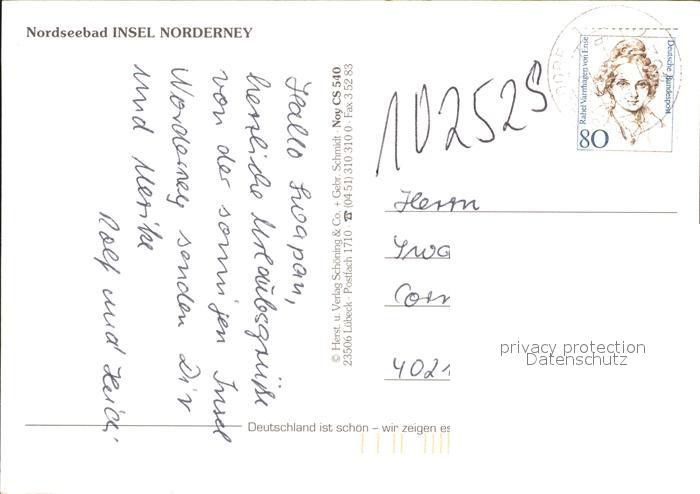 Nordseebad INSEL NORDERNEY
Hallo Swapan,
herzliche Urlaubsgrüße
von der sonnigen Insel
Norderney senden Dir
und Ulrike
Rolf und Heidi
© Herst. u. Verlag Schöning & Co. + Gebr. Schmidt · Noy CS 540
23506 Lübeck · Postfach 1710 · ☎ (04 51) 310 310 0 · Fax 3 52 83
102525
Rahel Varnhagen von Ense
Deutsche Bundespost
80
Herrn
Swa
4021
privacy protection
Datenschutz
Deutschland ist schön – wir zeigen es